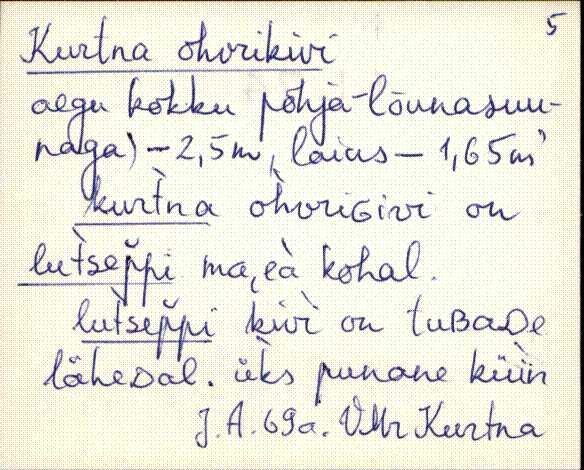 5
Kurtna ohvrikivi
aegu kokku põhja-lõunasuu-
naga) – 2,5m, laius – 1,65m
kurt̀na òhvriGivi on
lut̀sep̆p̆i ma,eà kohal.
lut̀sep̆p̆i kivì on tuBaDe
läheDal. üks punane küün
J.A. 69a. VMr Kurtna